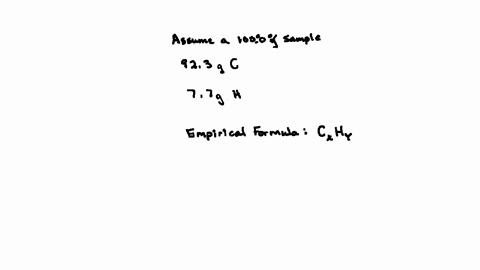 Assume a 100.0g sample
92.3 g C
7.7g H
Empirical Formula: CxHy